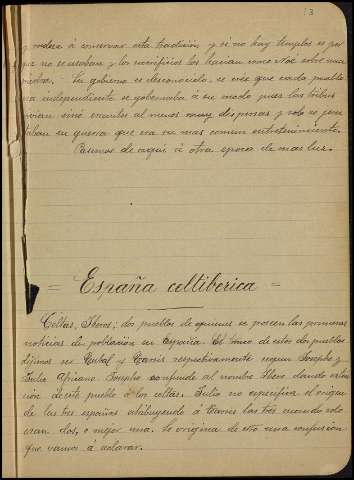 3
y ordena á conservar esta tradición y si no hay templos es por
que no se usaban y los sacrificios los hacian como Noé sobre una
piedra. Su gobierno es desconocido, se cree que cada pueblo
era independiente se gobernaba á su modo pues las tribus
vivian sinó errantes al menos muy dispersas y solo se jun
taban su guerra que era su mas comun entretenimiento.
Pasemos de aquí á otra epoca de mas luz.
= España celtiberica =
Celtas, Iberos; dos pueblos de quienes se poseen las primeras
noticias de poblacion en España. El   de estos dos pueblos
dijimos ser Tubal y Tarsis respectivamente segun Josepho y
Julio Africano. Josepho confunde al nombre Ibero dando esta
cion de este pueblo a los celtas. Julio no especifica el origen
de las tres españas atribuyendo á Tarsis las tres cuando solo
eran dos, o mejor una. Se origina de esto una confusión
que vamos á aclarar.